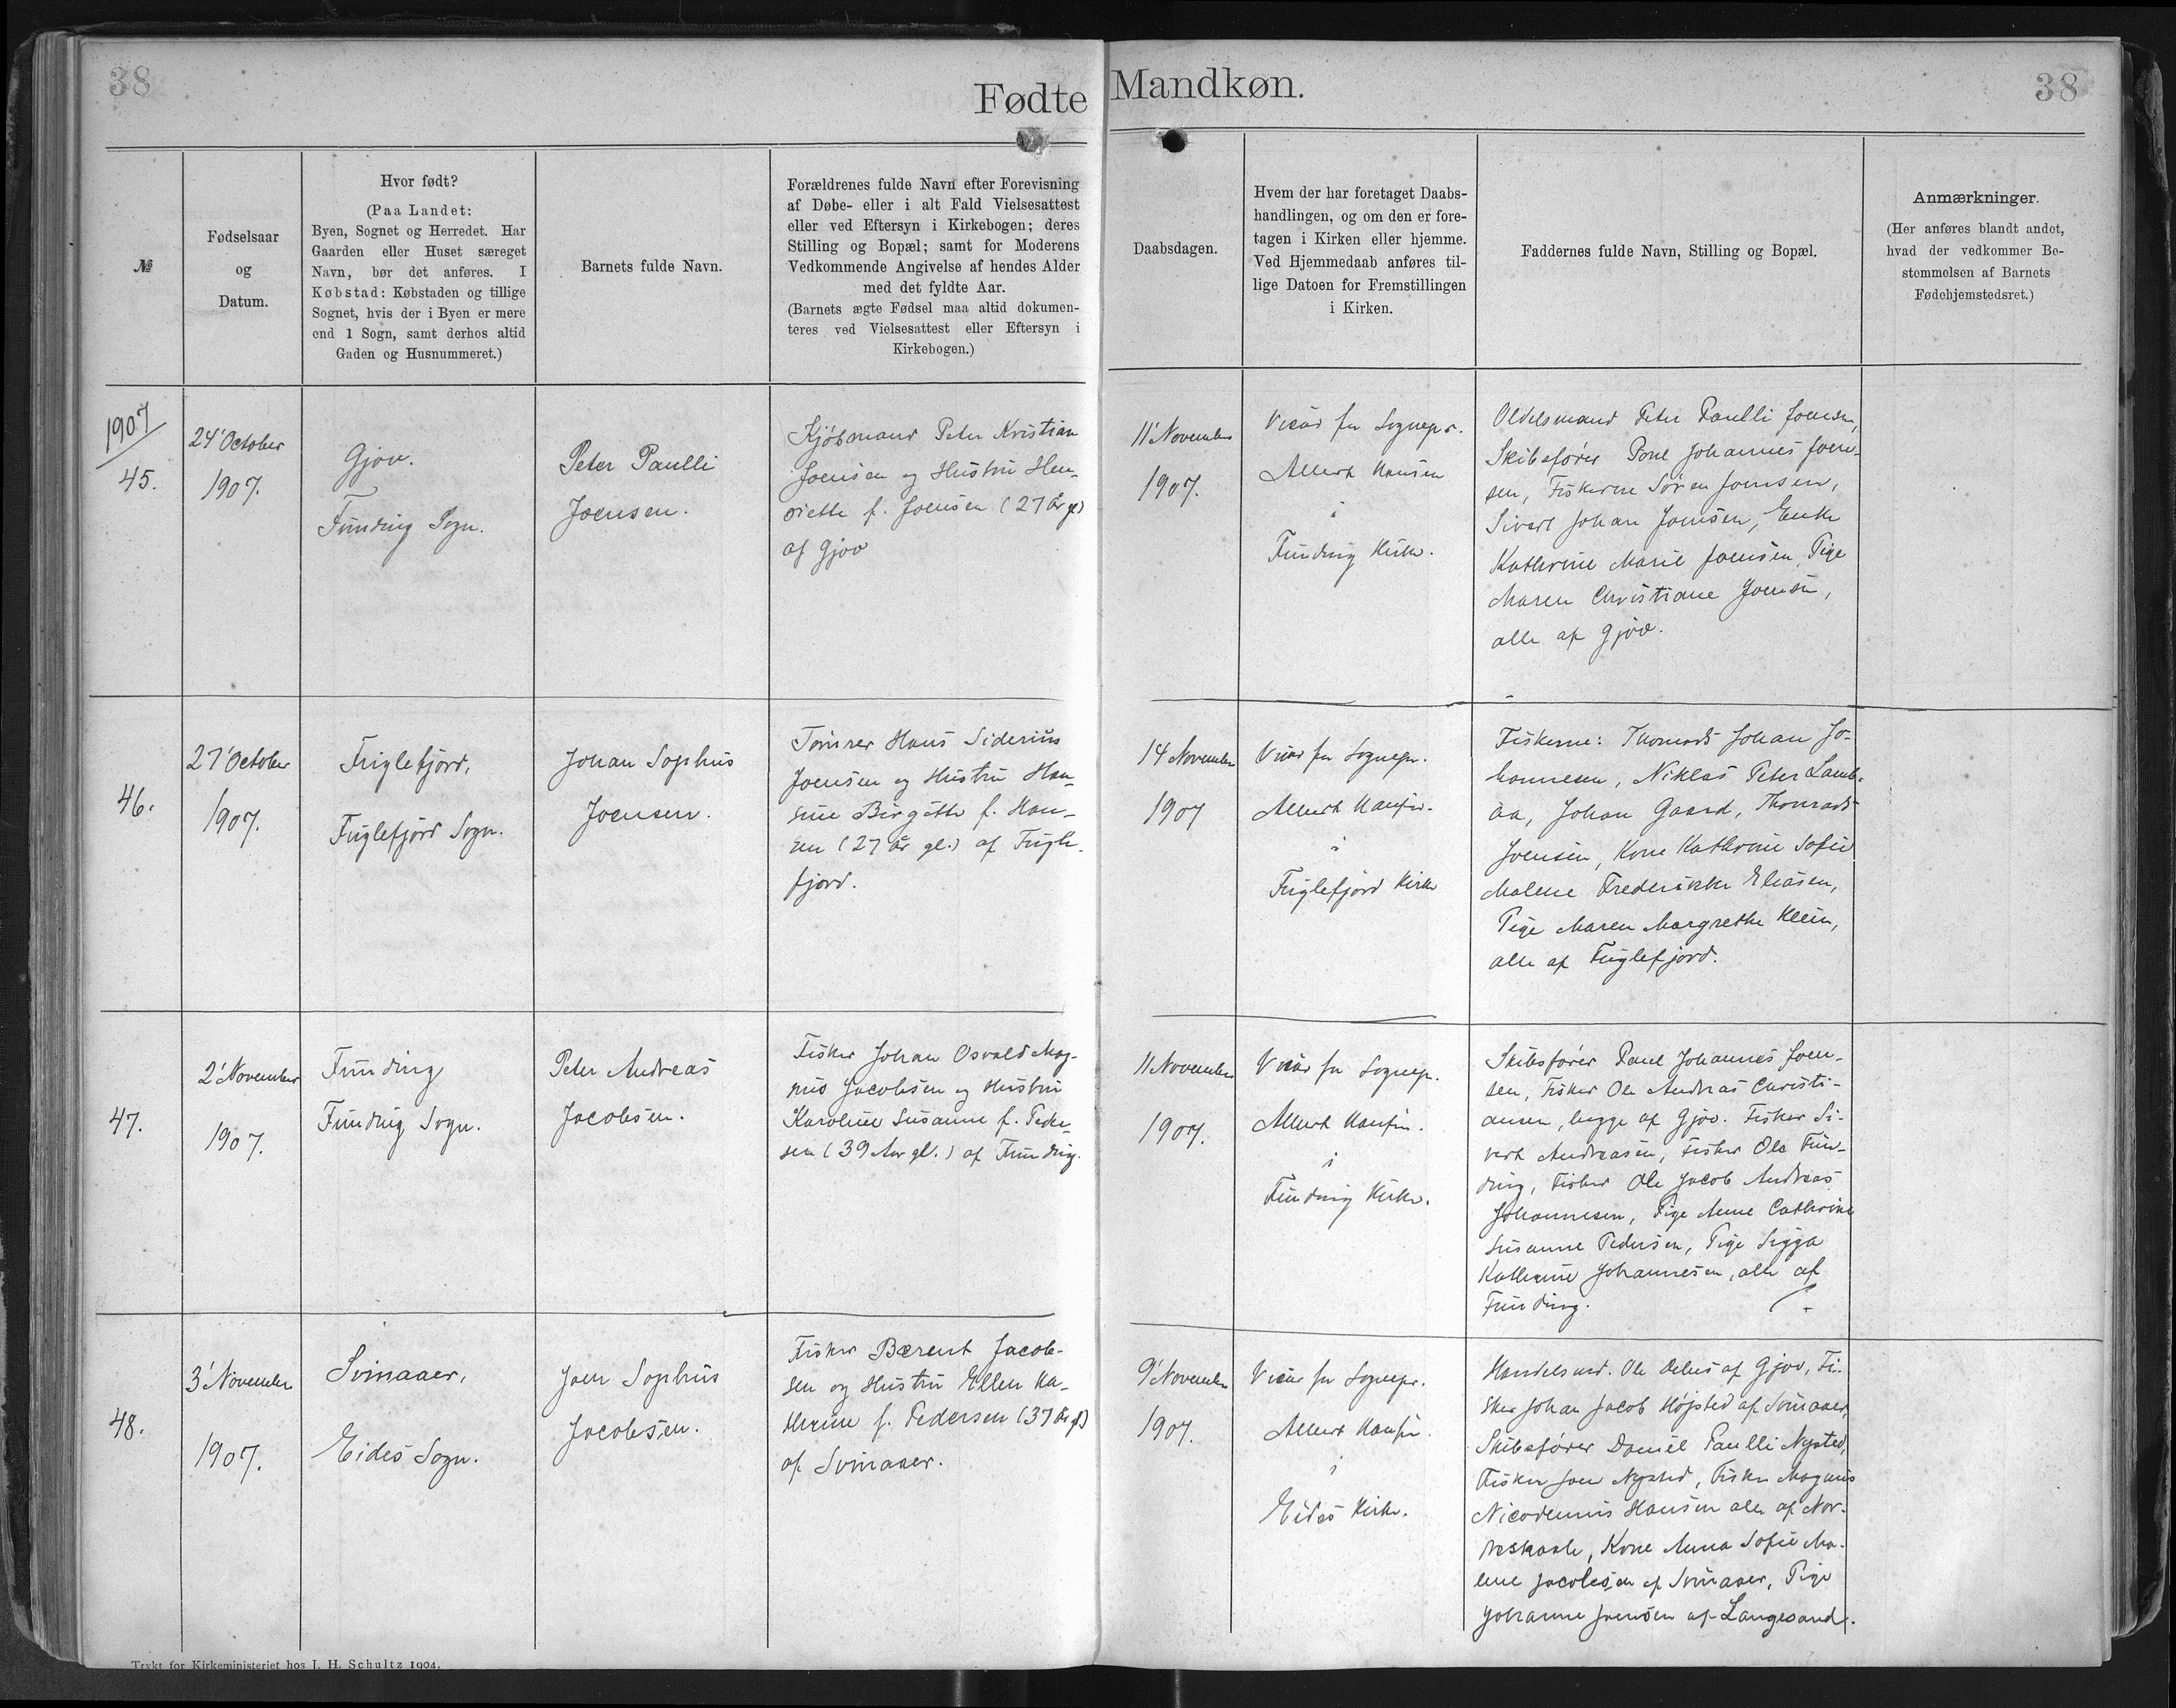 38
Fødte Mandkøn.
38
№
Fødselsaar
og
Datum.
Hvor født?
(Paa Landet:
Byen, Sognet og Herredet. Har
Gaarden eller Huset særeget
Navn, bør det anføres. I
Købstad: Købstaden og tillige
Sognet, hvis der i Byen er mere
end 1 Sogn, samt derhos altid
Gaden og Husnummeret.)
Barnets fulde Navn.
Forældrenes fulde Navn efter Forevisning
af Døbe- eller i alt Fald Vielsesattest
eller ved Eftersyn i Kirkebogen; deres
Stilling og Bopæl; samt for Moderens
Vedkommende Angivelse af hendes Alder
med det fyldte Aar.
(Barnets ægte Fødsel maa altid dokumen-
teres ved Vielsesattest eller Eftersyn i
Kirkebogen.)
Daabsdagen.
Hvem der har foretaget Daabs-
handlingen, og om den er fore-
tagen i Kirken eller hjemme.
Ved Hjemmedaab anføres til-
lige Datoen for Fremstillingen
i Kirken.
Faddernes fulde Navn, Stilling og Bopæl.
Anmærkninger.
(Her anføres blandt andet,
hvad der vedkommer Be-
stemmelsen af Barnets
Fødehjemstedsret.)
1907
45.
24' October
1907.
Gjov.
Funding Sogn.
Peter Paulli
Joensen.
Kjøbmand Peter Kristian
Joensen og Hustru Hen-
riette f. Joensen (27 år gl)
af Gjov
11' November
1907.
Vicar for Sognepr.
Albert Hansen
i
Funding Kirke.
Oldelsmand Peter Paulli Joensen,
Skibsfører Poul Johannes Joen-
sen, Fiskerne Sören Joensen,
Sivert Johan Joensen, Enke
Kathrine Marie Joensen, Pige
Maren Christiane Joensen,
alle af Gjov.
46.
27' October
1907.
Fuglefjord,
Fuglefjord Sogn.
Johan Sophus
Joensen.
Tømrer Hans Siderius
Joensen og Hustru Han-
sine Birgitte f. Han-
sen (27 år gl.) af Fugle-
fjord.
14 November
1907
Vicar for Sognepr.
Albert Hansen.
i
Fuglefjord Kirke
Fiskerne: Thomas Johan Jo-
hannesen, Niklas Peter Lamb-
aa, Johan Gaard, Thomas
Joensen, Kone Kathrine Sofie
Malene Frederikke Eliasen,
Pige Maren Margrethe Klein,
alle af Fuglefjord.
47.
2' November
1907.
Funding
Funding Sogn.
Peter Andreas
Jacobsen.
Fisker Johan Osvald Mag-
nus Jacobsen og Hustru
Karoline Susanne f. Peder-
sen (39 Aar gl.) af Funding.
11 November
1907.
Vicar for Sognepr.
Albert Hansen.
i
Funding Kirke.
Skibsfører Poul Johannes Joen-
sen, Fisker Ole Andreas Christi-
ansen, begge af Gjov. Fisker Si-
vert Andreasen, Fisker Ole Fun-
ding, Fisker Ole Jacob Andreas
Johannesen, Pige Anne Cathrine
Susanne Pedersen, Pige Sigga
Kathrine Johannesen, alle af
Funding.
48.
3' November
1907.
Svinaaer,
Eides Sogn.
Joen Sophus
Jacobsen.
Fisker Bærent Jacob-
sen og Hustru Ellen Ka-
thrine f. Pedersen (37 år gl)
af Svinaaer.
9' November
1907.
Vicar for Sognepr.
Albert Hansen.
i
Eides Kirke.
Handelsmd. Ole Delus af Gjov, Fi-
sker Johan Jacob Højsted af Svinaaer,
Skibsfører Daniel Paulli Nysted,
Fisker Joen Nysted, Fisker Magnus
Nicodemus Hansen alle af Nor-
dreskaale, Kone Anna Sofie Ma-
lene Jacobsen af Svinaaer, Pige
Johanne Joensen af Langesand.
Trykt for Kirkeministeriet hos J. H. Schultz 1904.